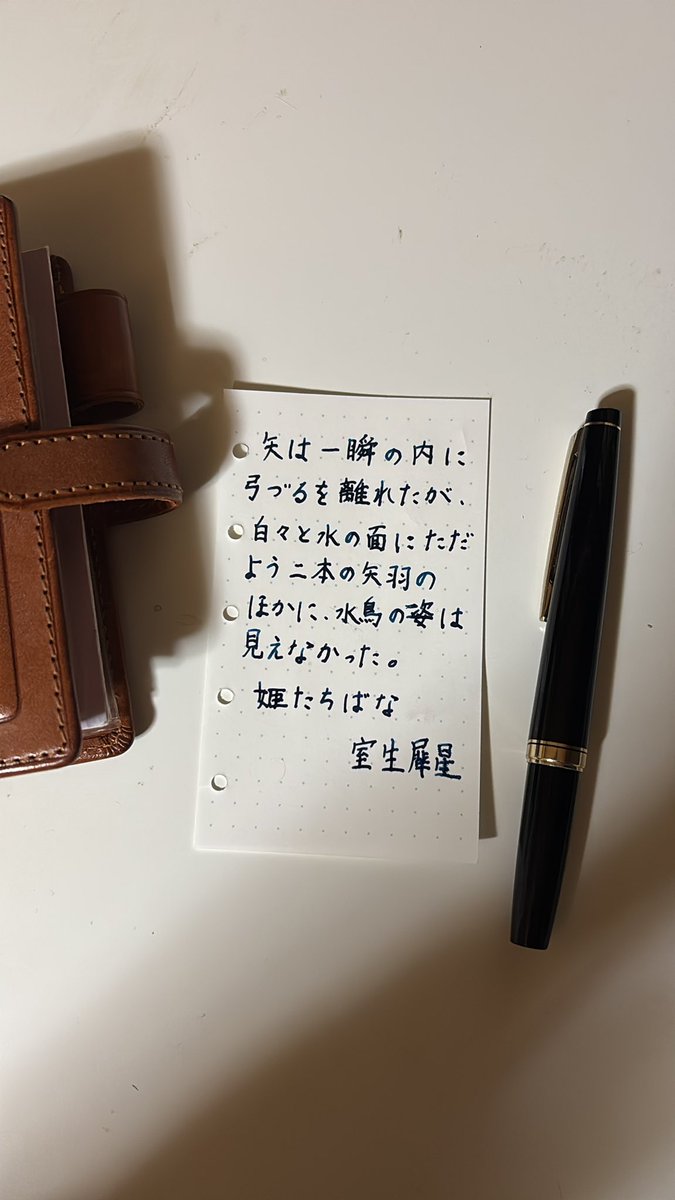 矢は一瞬の内に
弓づるを離れたが、
白々と水の面にただ
よう二本の矢羽の
ほかに、水鳥の姿は
見えなかった。
姫たちばな
室生犀星